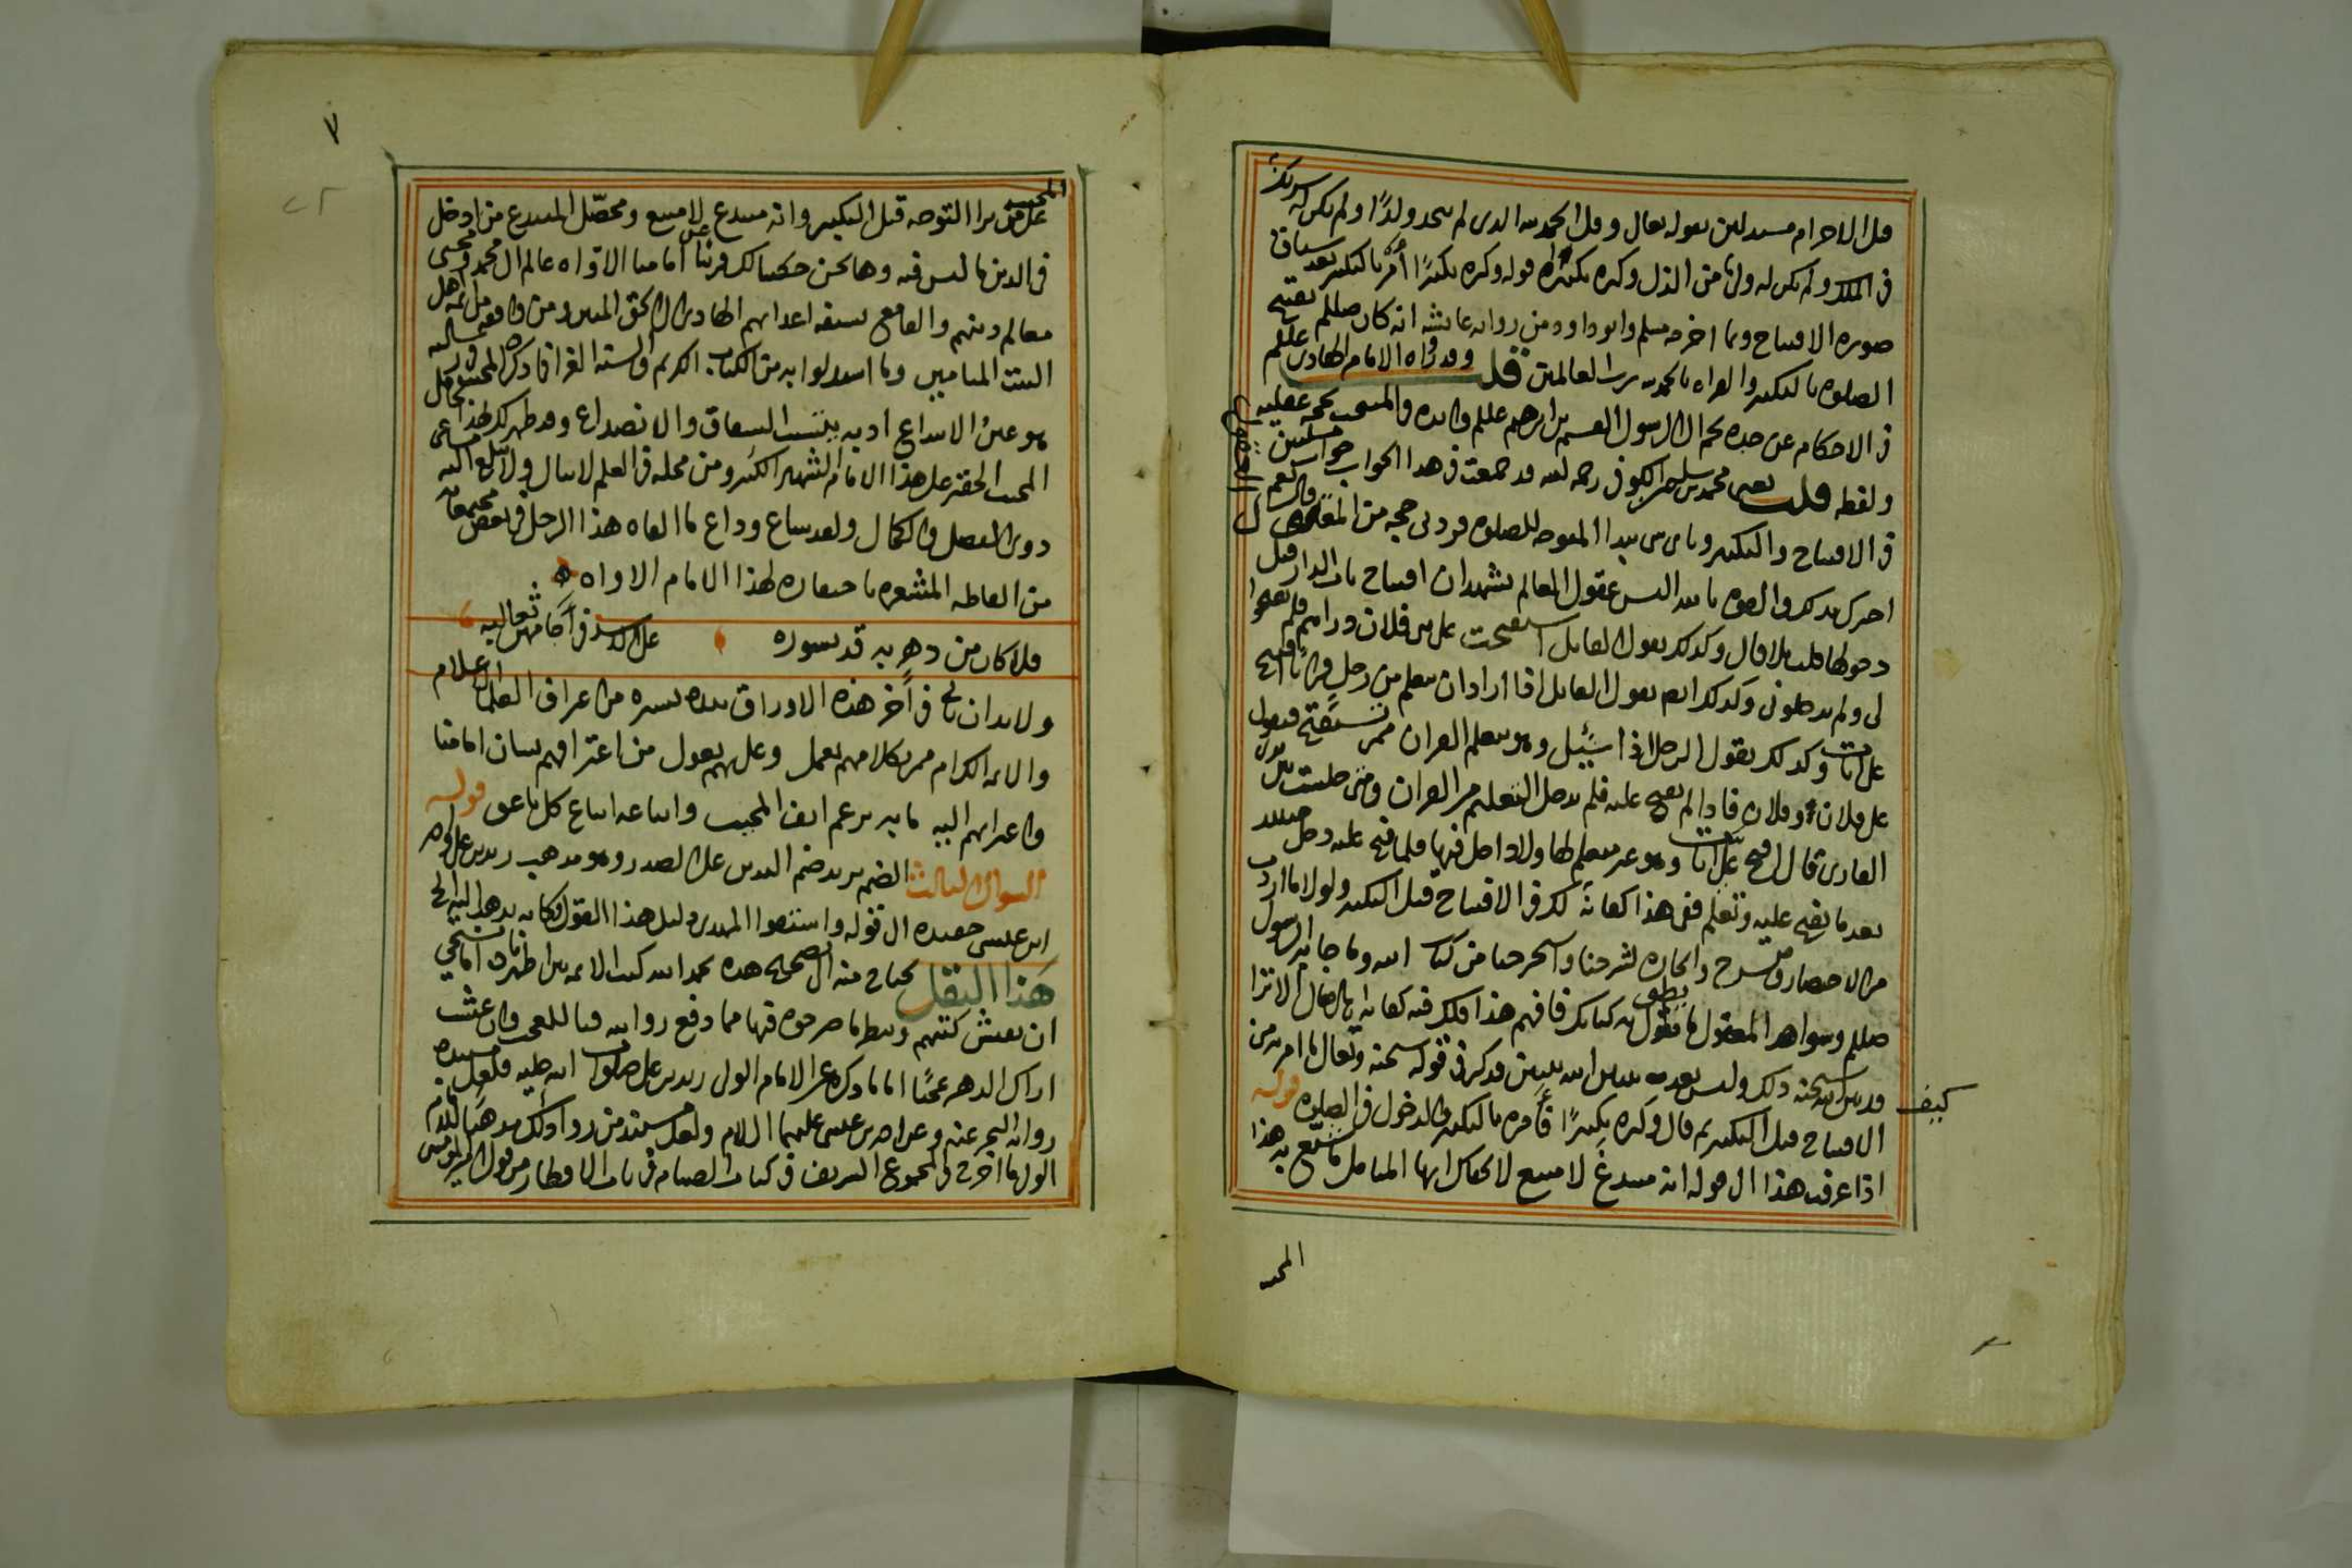 قبل الاحرام مستدلين بقوله تعالى وقل الحمد لله الذي لم يتخذ ولدًا ولم يكن له شريك
في الملك ولم يكن له ولي من الذل وكبره تكبيرًا قوله وكبره تكبيرًا أمره بالتكبير بعد سياق
صورة الافتتاح وبما اخرجه مسلم وابو داود من رواية عائشة انه كان صللم يفتتح
الصلوة بالتكبير والقراه بالحمد لله رب العالمين قلت وقد رواه الامام الهادي عللم
في الاحكام عن جده نجم ال الرسول القسم بن ابرهيم عللم
ولفظه قلت يعني محمد بن سليمن الكوفي رحمه الله قد جمعت في هذا الجواب جوابين
في الافتتاح والتكبير وباي شي يبدا المتوجه للصلوة فزدني حجة من المقال قال نعم
اخبرك بذلك والقوه بالله اليس عقول العالم تشهد ان افتتاح باب الدار قبل
دخولها قلت بلا قال وكذلك يقول القايل استفتحت على بني فلان دارهم فلم يفتحوا
لي ولم يدخلوني وكذلك ايضا يقول القايل اذا اراد ان يتعلم من رجل قرانا افتح
علي ايات وكذلك يقول الرجل اذا سُئِل وهو يتعلم القران ممن تستفتح فيقول
على فلان وفلان فاذا لم يفتح عليه فلم يدخل التعليم من القران ومتى جلست بين يدي
القاري فقال افتح علي ايات وهو غير متعلم لها ولا داخل فيها فلما فتح عليه دخل حينئذ
بعد ما يفتح عليه وتعلم ففي هذا كفاية لك في الافتتاح قبل التكبير ولولا ما اردت
من الاختصار لشرحنا واستخرجنا من كتاب الله وما جا به الرسول
صللم وشواهد المعقول ما يطول به كتابك فافهم هذا فلك فيه كفاية الا ترا
كيف قد بين الله سبحنه ذلك وليس بعد تبيين الله تبيين فذكر في قوله سبحنه وتعالى ما امر به من
الافتتاح قبل التكبير ثم قال وكبره تكبيرًا فأمره بالتكبير والدخول في الصلوة قوله
اذا عرفت هذا ال قوله انه مبتدع لا متبع لا يخفاك ايها المتامل ما شنع به هذا
المجيب
٧
المجيب على من يرا التوجه قبل التكبير وانه مبتدع لا متبع ومحصّل المبتدع من ادخل
في الدين ما ليس فيه وها نحن حكينا لك عن امامنا الاواه عالم ال محمد ومحيي
معالم دينهم والقامع بسيفه اعدايهم الهادي الى الحق المبين ومن وافقه من ائمة اهل
البيت الميامين وما استدلوا به من الكتاب الكريم والسنه الغرا
هو عينُ الابتداع اذ به يتسبب الشقاق والانصداع وقد ظهر لك بهذا
المجيب الحقير على هذا الامام الشهير الكبير ومن محله في العلم لا ينال ولا يبلغ اليه
ذوي الفضل والكمال ولقد شاع وذاع ما القاه هذا الرجل في بعض مجتمعاته
من الفاظه المشعره باحتقاره لهذا الامام الاواه
فلا كان من دهر به قد تسودت على الاسد في آجامهن ثعالبه
ولا بد ان ياتي في آخر هذه الاوراق نبذه يسيره من اعراف العلما الاعلام
والائمة الكرام ممن بكلامهم يعمل وعليهم يعول من اعترافهم بشان امامنا
واعتزايهم اليه ما به يرغم انف المجيب واتباعه اتباع كل ناعق قوله
السوال الثالث الضم يريد ضم اليدين على الصدر وهو مذهب زيد بن علي واحمد
ابن عيسى حفيده ال قوله واستقوا المهدي دليل هذا القول وكانه يذهب اليه الخ
هذا النقل يحتاج منه الى تصحيح هذه بحمد الله كتب الائمه بين اظهرنا
ان يفتش كتبهم وينظر ما صرحوه فيها مما دفع روايته فيا للعجب وان عشت
اراك الدهر عجبًا اما ما ذكره عن الامام الولي زيد بن علي صلوات الله عليه فلعل مستنده
رواية البحر عنه وعن احمد بن عيسى عليهما السلام ولعل مستند من روا ذلك مذهبًا للامام
الولي ما اخرج في المجموع الشريف في كتاب الصيام في باب الافطار من قول امير المومنين